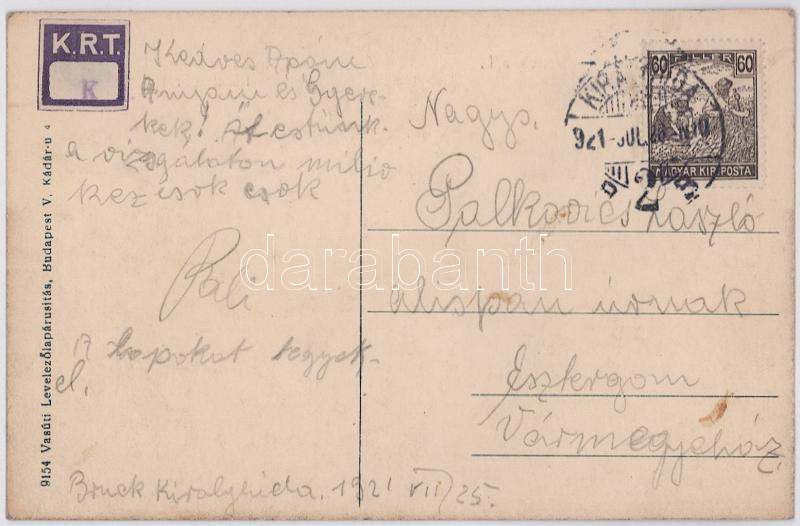 K.R.T.
K
Kedves Apám
Anyám és Gyere-
kek! Átestünk
a vizsgálaton millió
kéz csók csók
Pali
A lapokat tegyék
el.
Bruck Királyhida. 1921 VII/25.
9154 Vasúti Levelezőlapárusítás, Budapest V, Kádár-u 4
60 FILLÉR 60
MAGYAR KIR. POSTA
KIRÁLYHIDA
921-JUL
Nagys.
Palkovics László
alispán úrnak
Esztergom
Vármegyeház.
darabanth